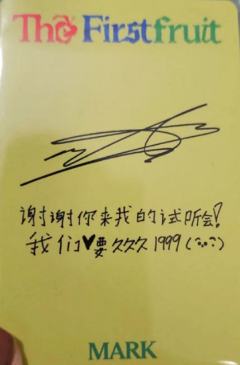 The Firstfruit
谢谢你来我的试听会!
我们♥要久久久1999(ᵔᴗᵔ)
MARK